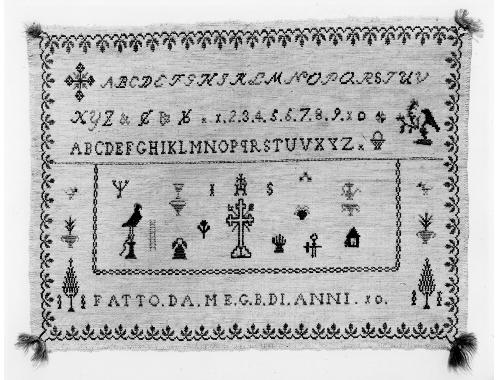 ABCDEFGHIKLMNOPQRSTUV
XYZ & 1.2.3.4.5.6.7.8.9.10
ABCDEFGHIKLMNOPQRSTUVXYZ
FATTO.DA.ME G.B.DI.ANNI.10.